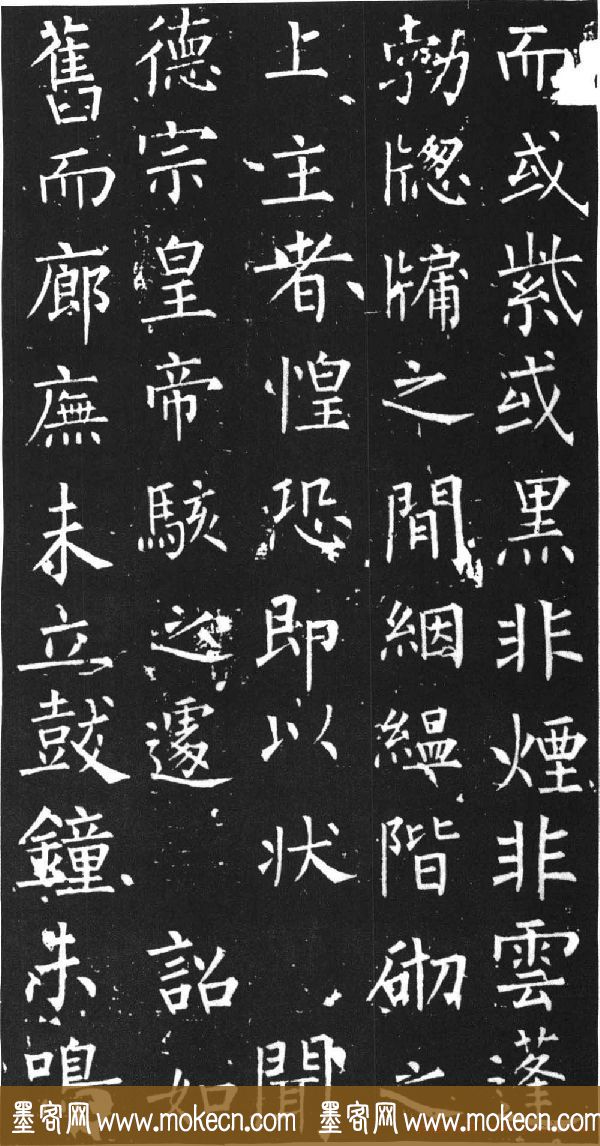 而或紫或黑非煙非雲蓬
勃牎牖之間絪縕階砌之
上主者惶恐即以状聞
德宗皇帝駭之遽詔如
舊而廊廡未立鼓鐘未鳴
墨客网 www.mokecn.com 墨客网 www.mokecn.com